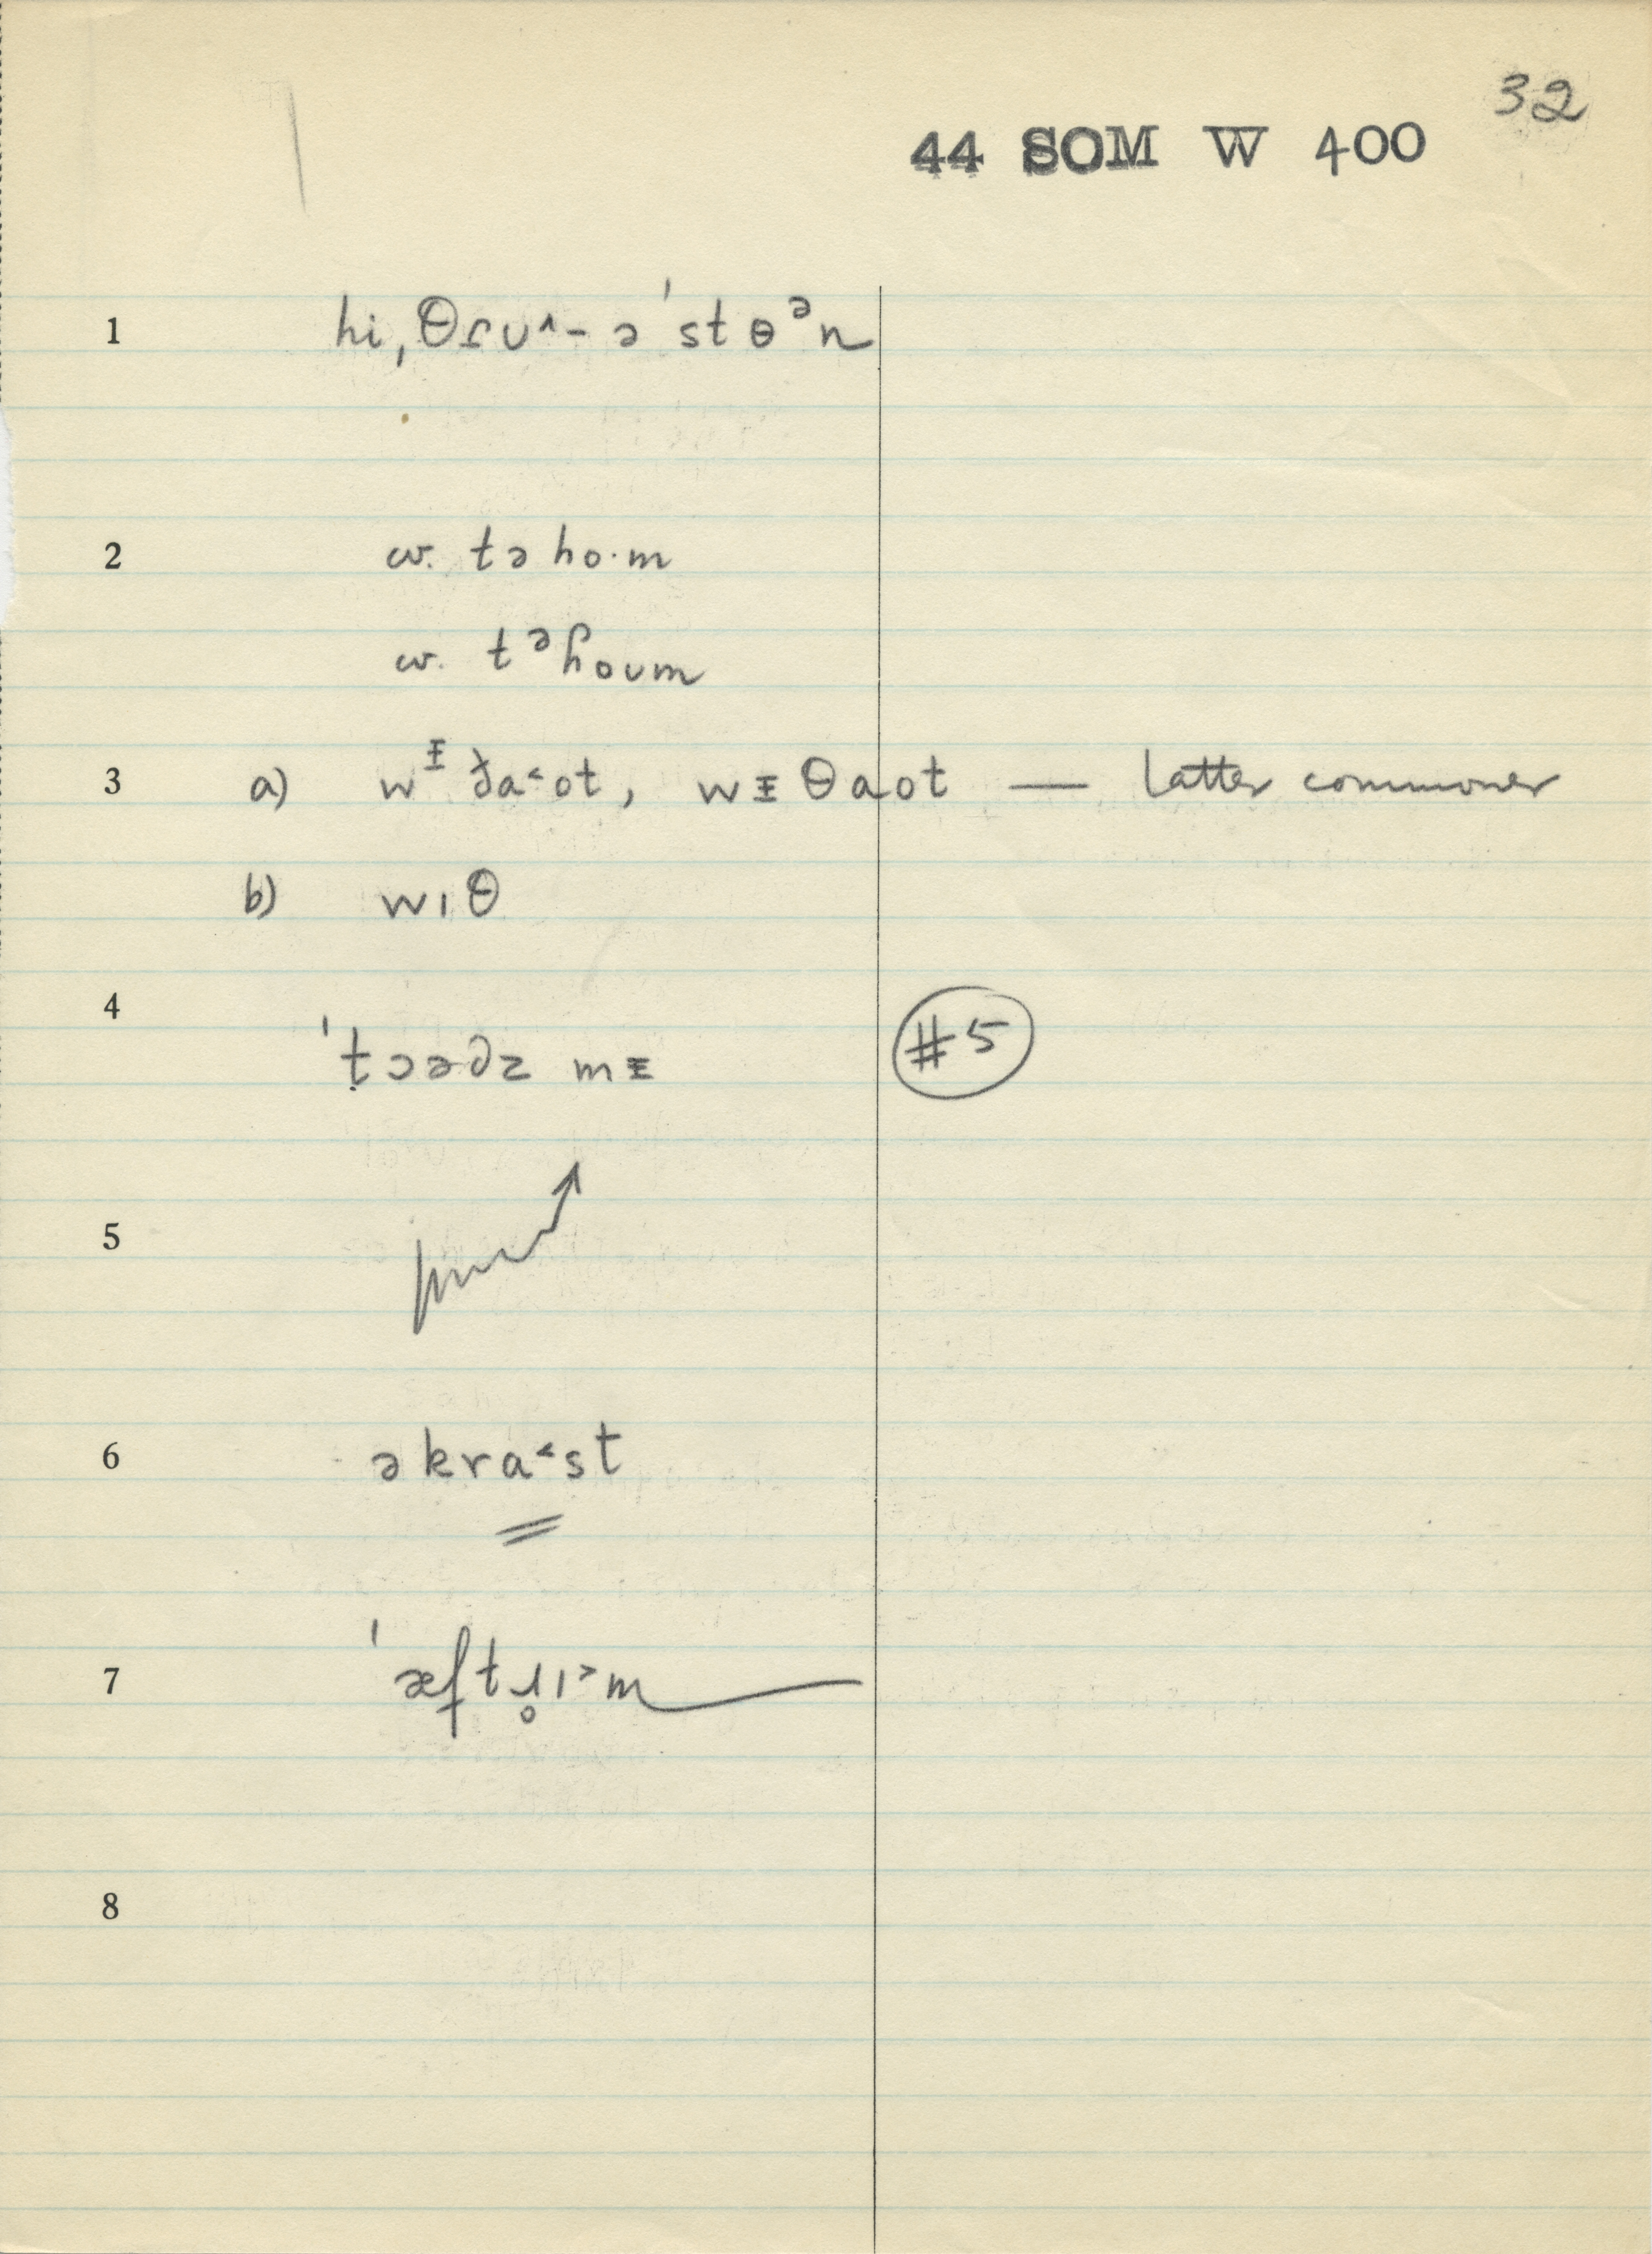 32
44 SOM W 400
1 hi ˌθɾʊ^- ə ˈst ɵ ᵊn
2 w. tə ho·m
w. t ᵊɦoʊm
3 a) wᵻ ða˂ot, wᵻ θaot — latter commoner
b) wɪθ
4 ˈt̩ɔədz mᵻ #5
5
6 əkra˂st
7 ˈæftɹ̥ɪ˃m
8